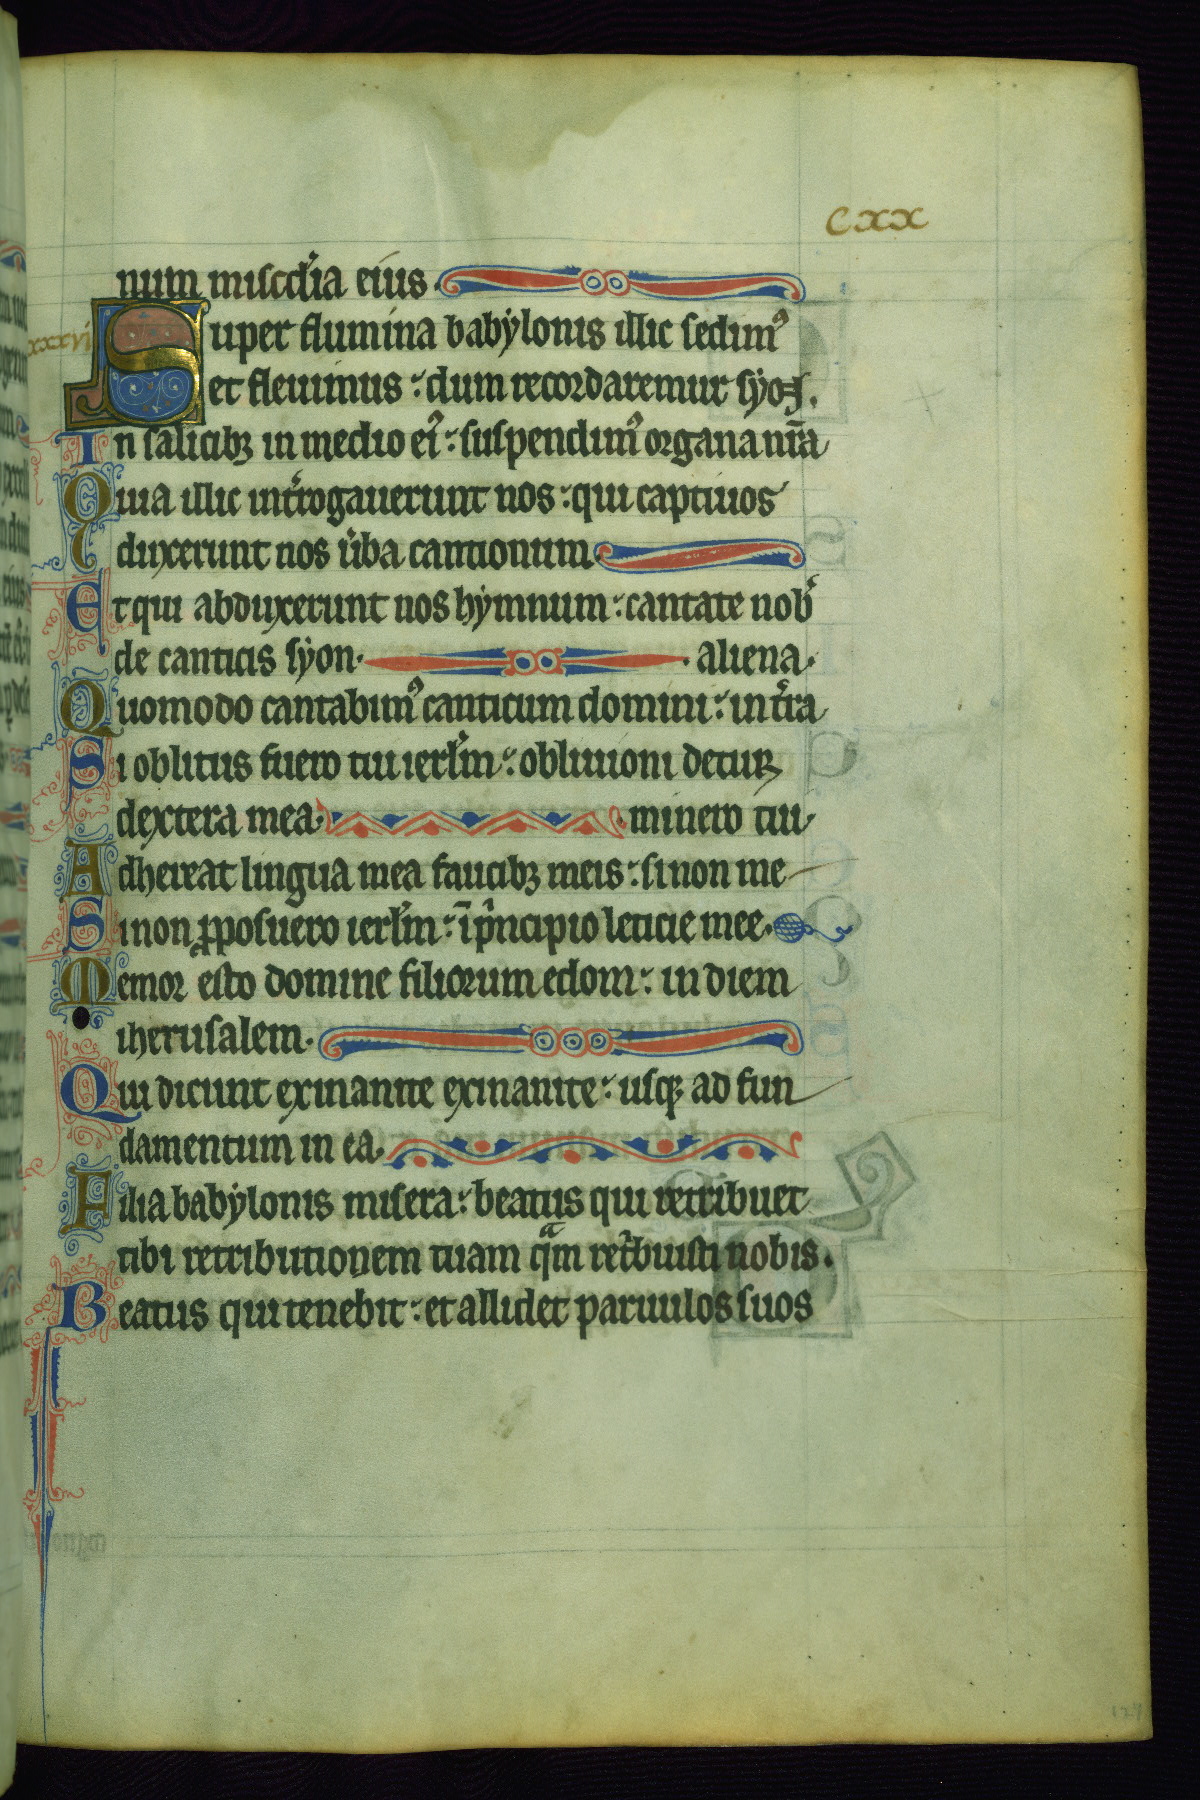 CXX
num miscd'ia eius.
xxxvi
Super flumina babylonis illic sedim9
et fleuimus : dum recordaremur syon.
In salicibꝫ in medio ei9 : suspendim9 organa nr̄a
Quia illic int'rogauerunt nos : qui captiuos
duxerunt nos u'ba cantionum.
Et qui abduxerunt nos hymnum : cantate nob'
de canticis syon. aliena.
Quomodo cantabim9 canticum domini : in t'ra
Si oblitus fuero tui ierl'm : obliuioni detur
dextera mea. minero tui
Adhereat lingua mea faucibꝫ meis : si non me
Si non ꝓposuero ierl'm : ī p'ncipio leticie mee.
Memor esto domine filiorum edom : in diem
iherusalem.
Qui dicunt exinanite exinanite : usqꝫ ad fun
damentum in ea.
Filia babylonis misera : beatus qui retribuet
tibi retributionem tuam qᵃm ret'buisti nobis.
Beatus qui tenebit : et allidet paruulos suos